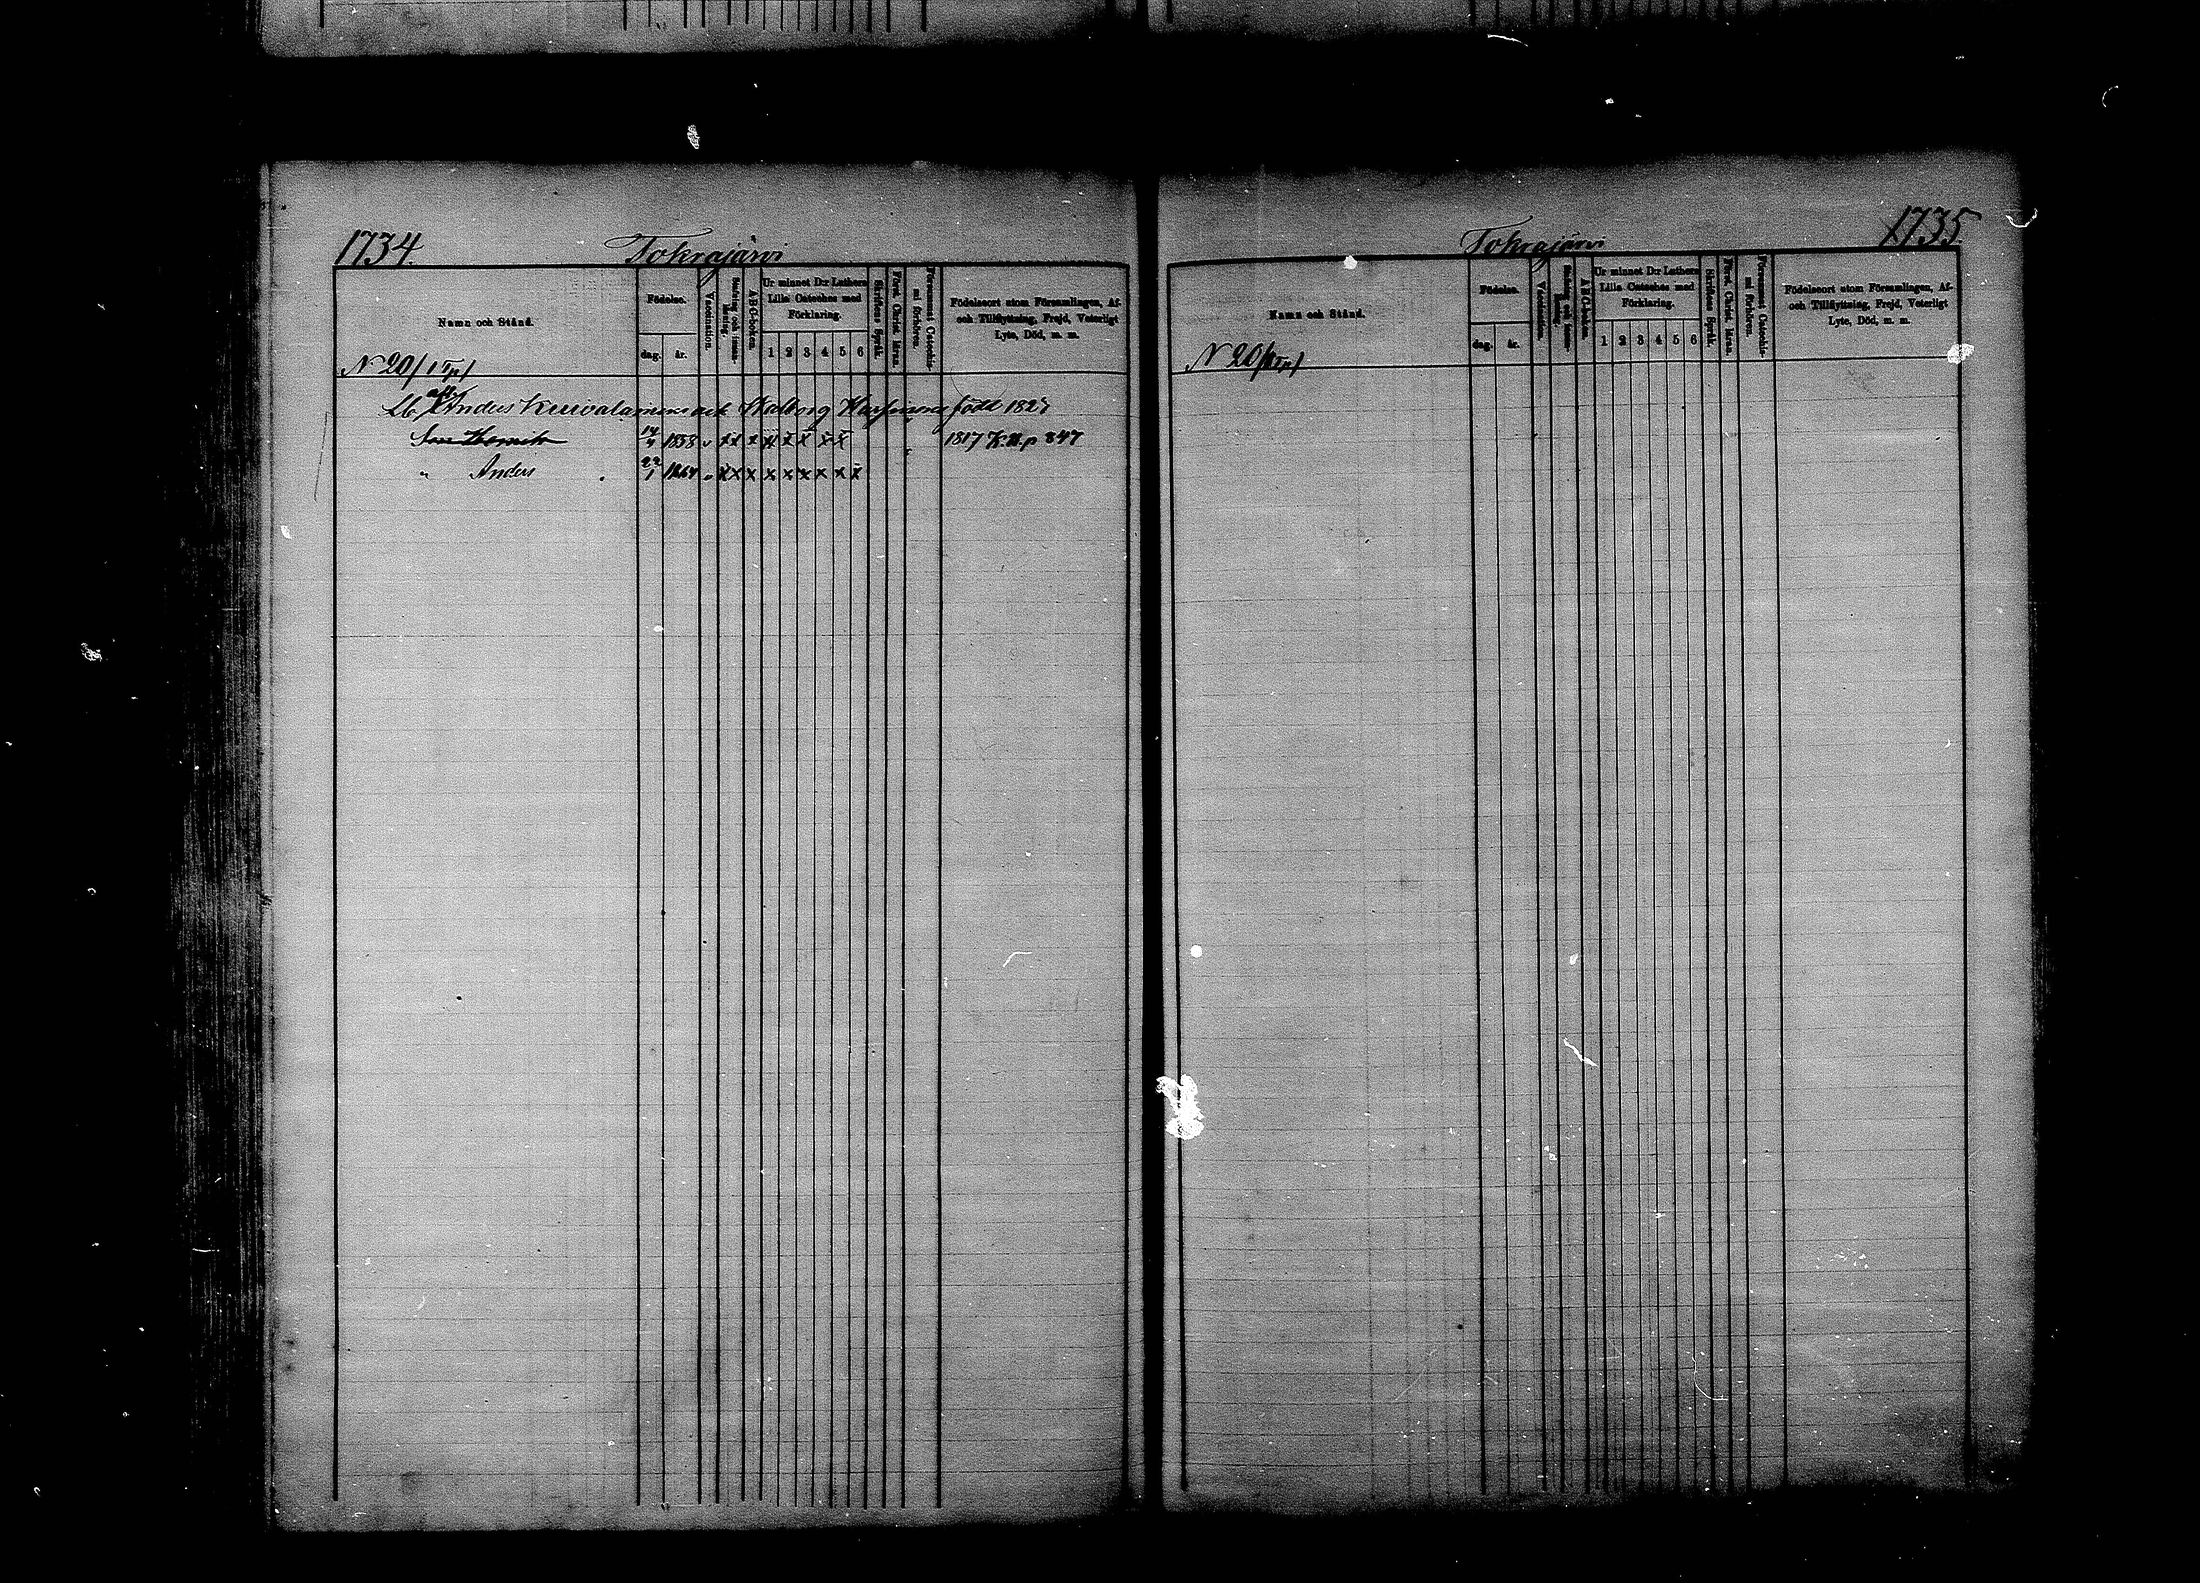 1734.
Tokrajärvi
Namn och Stånd.
Födelse.
dag.
år.
Vaccination.
A B C-boken.
Ur minnet D:r Luthers
Lilla Cateches med
Förklaring.
1 2 3 4 5 6
Skriftens Språk.
Förest. Christ. läran.
Försummat Catechis-
mi förhören.
Födelseort utom Församlingen, Af-
och Tillflyttning, Frejd, Veterligt
Lyte, Död, m. m.
N 20
Anders ock Walborg född 182
Son 14 1858 x x x x x x x x 1817 K.B. p 847
" Anders 22/1 1864 x x x x x x x x x
1735.
Tokrajärvi
Namn och Stånd.
Födelse.
dag.
år.
Vaccination.
A B C-boken.
Ur minnet D:r Luthers
Lilla Cateches med
Förklaring.
1 2 3 4 5 6
Skriftens Språk.
Förest. Christ. läran.
Försummat Catechis-
mi förhören.
Födelseort utom Församlingen, Af-
och Tillflyttning, Frejd, Veterligt
Lyte, Död, m. m.
N 20